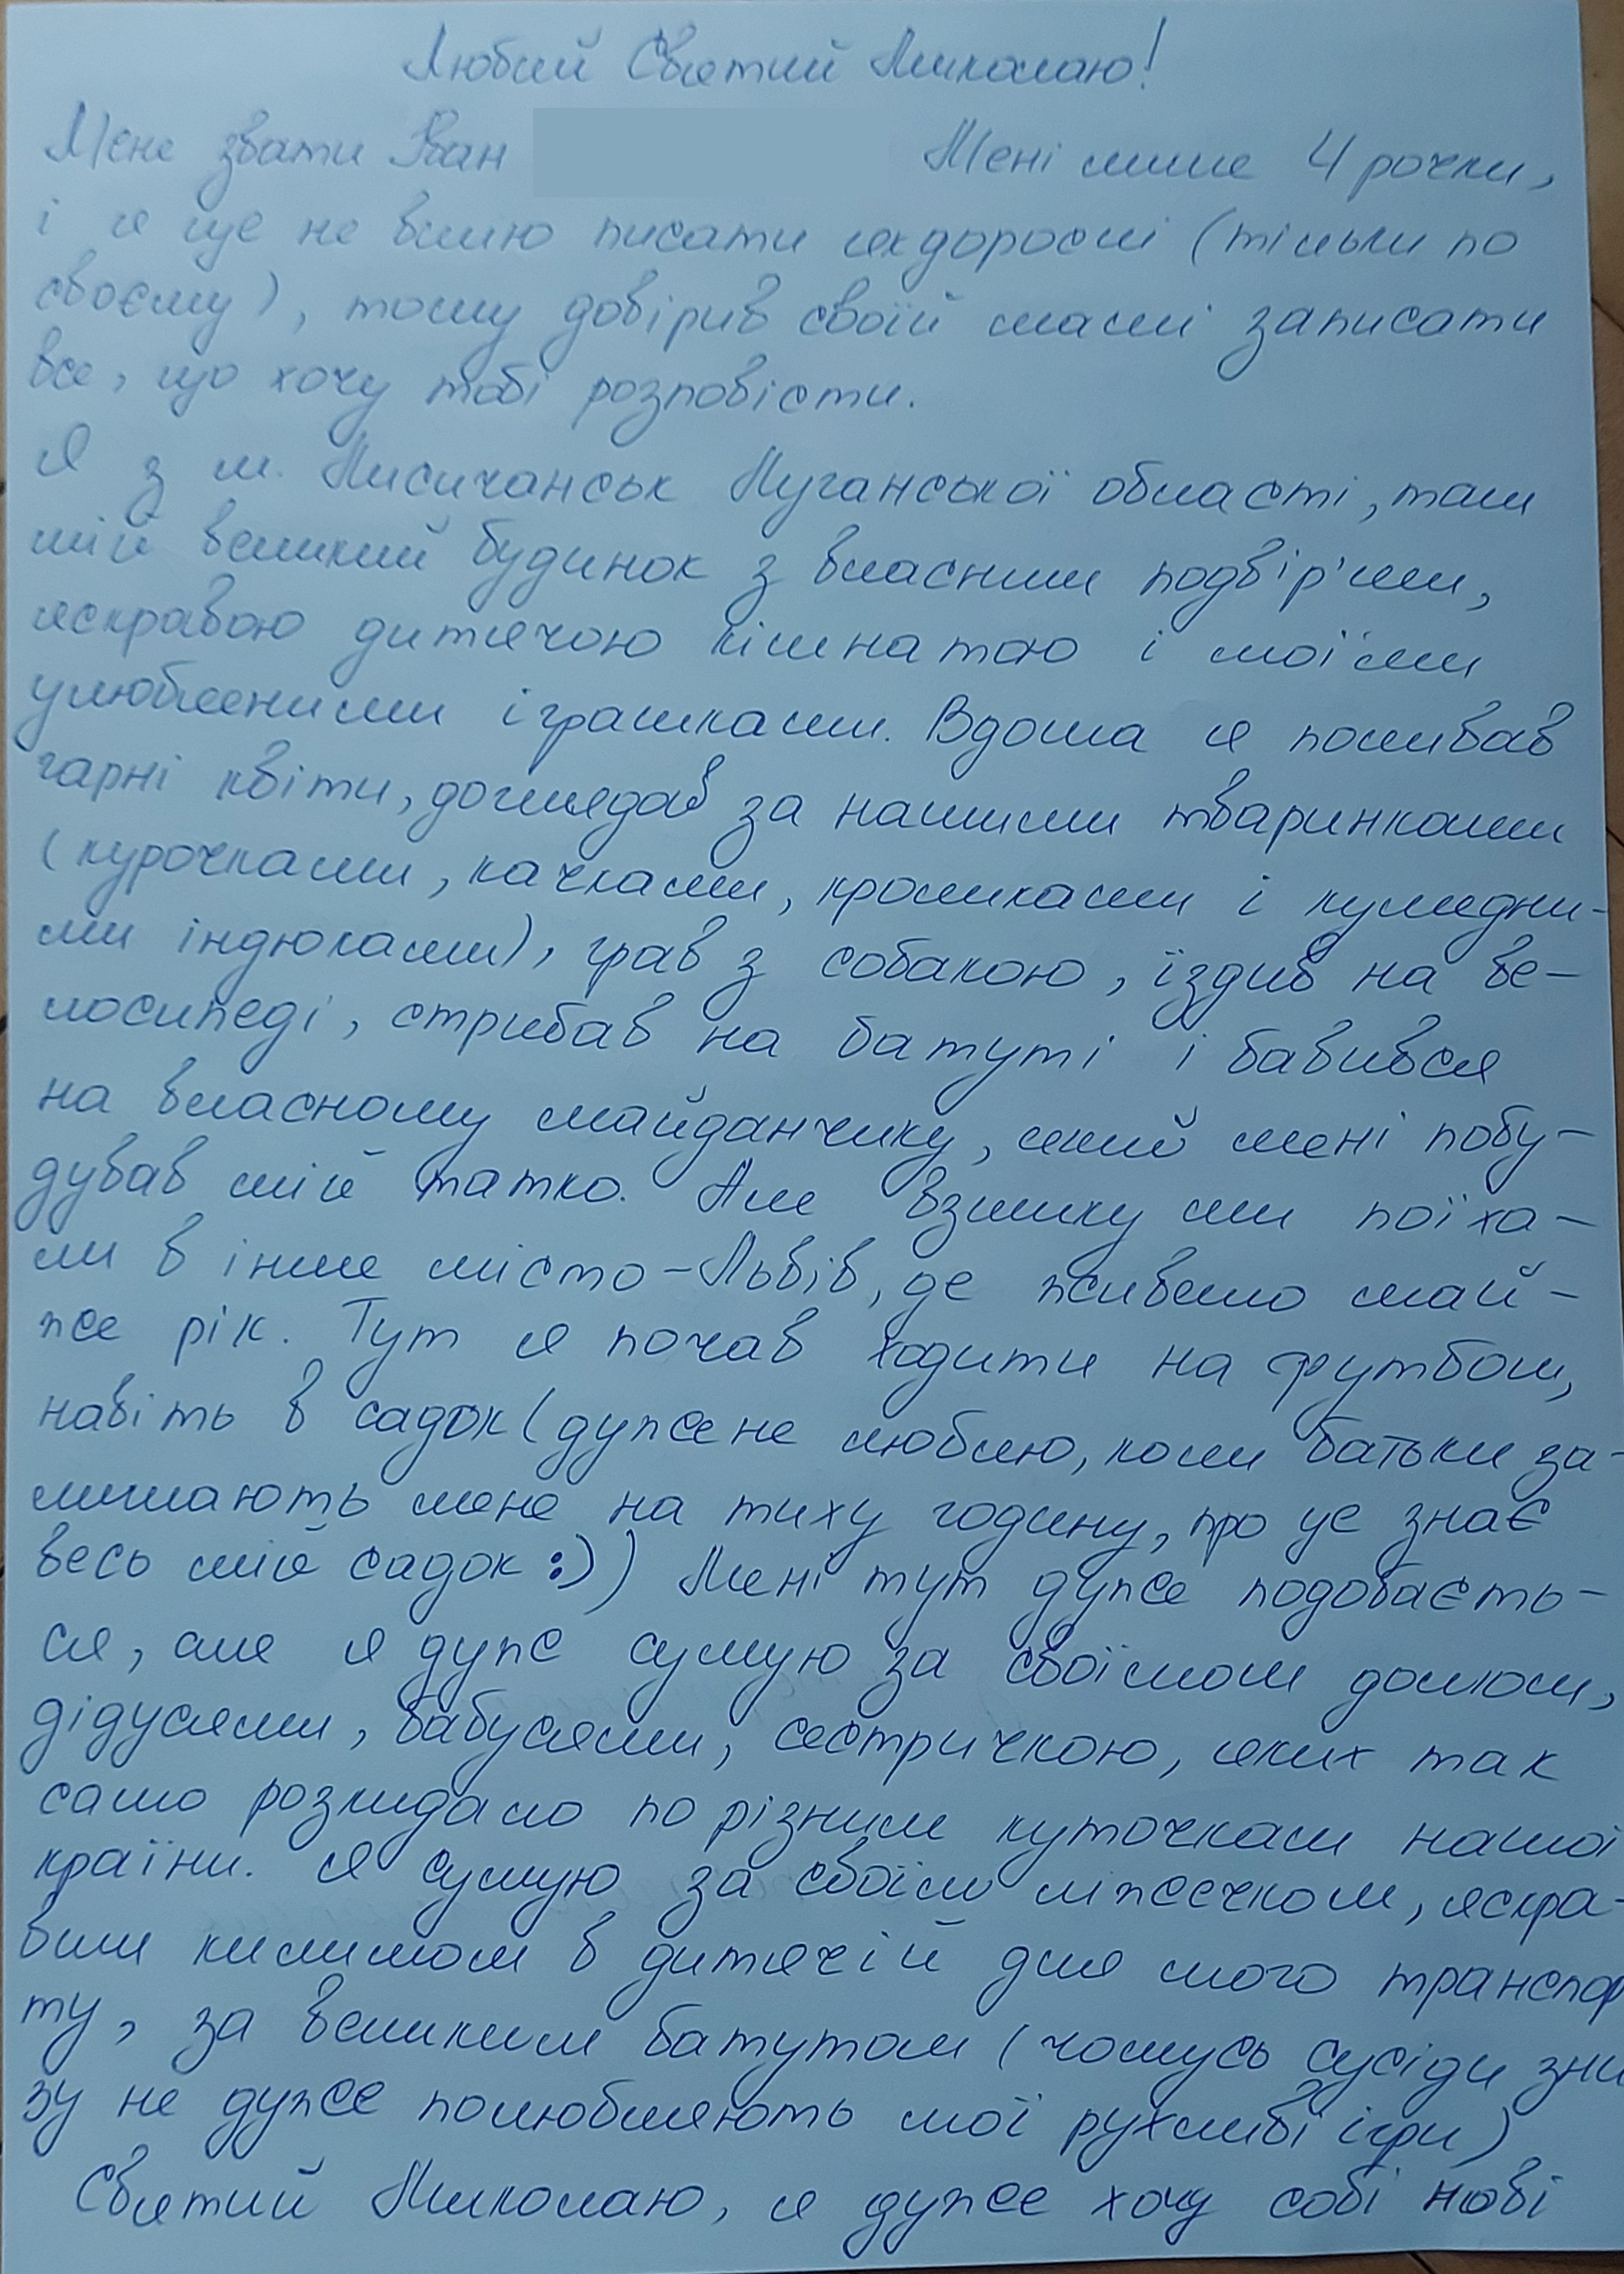 Любий Святий Миколаю!
Мене звати Іван Мені лише 4 рочки,
і я ще не вмію писати як дорослі (тільки по
своєму), тому довірив своїй мамі записати
все, що хочу тобі розповісти.
Я з м. Лисичанськ Луганської області, там
мій великий будинок з власним подвір'ям,
яскравою дитячою кімнатою і моїми
улюбленими іграшками. Вдома я поливав
гарні квіти, доглядав за нашими тваринками
(курочками, качками, кроликами і кумедни-
ми індюками), грав з собакою, їздив на ве-
лосипеді, стрибав на батуті і бавився
на власному майданчику, який мені побу-
дував мій татко. Але взимку ми поїха-
ли в інше місто - Львів, де живемо май-
же рік. Тут я почав ходити на футбол,
навіть в садок (дуже не люблю, коли батьки за-
лишають мене на тиху годину, про це знає
весь мій садок :)) Мені тут дуже подобаєть-
ся, але я дуже сумую за своїм домом,
дідусями, бабусями, сестричкою, яких так
само розкидало по різним куточкам нашої
країни. Я сумую за своїм ліжечком, яскра-
вим килимом в дитячій для мого транспор
ту, за великим батутом (чомусь сусіди зни
зу не дуже полюбляють мої рухливі ігри)
Святий Миколаю, я дуже хочу собі нові